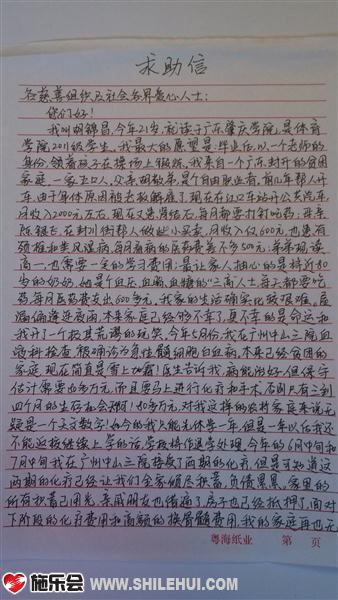 求助信
各慈善组织及社会各界爱心人士:
你们好!
我叫胡锦昌,今年21岁,就读于广东肇庆学院,是体育
学院2011级学生。我最大的愿望是:毕业后,以一个老师的
身份,领着孩子在操场上锻炼。我来自一个广东封开的贫困
家庭,一家五口人,父亲胡敬年,是个自由职业者,前几年帮人开
车,由于身体原因被老板解雇了,现在在江口车站开公共汽车,
月收入2000元左右。现在又患肾结石,每月都要打针吃药;母亲
陈银飞,在封川街帮人做些小买卖,月收入仅600元,也患有
颈椎和类风湿病,每月看病的医药费差不多500元;弟弟现读
高一,也需要一定的学习费用;最让家人揪心的是将近80
岁的奶奶,她是个血压、血脂、血糖的“三高”人士每天都要吃
药,每月医药费支出600多元,我家的生活确实比较艰难。屋
漏偏逢连夜雨,本来家庭已经够不幸了,更不幸的是命运和
我开了一个极其荒谬的玩笑,今年5月份,我在广州中山三院血
液科检查,被确诊为急性髓细胞白血病,本来已经贫困的
家庭,现在简直是雪上加霜!医生告诉我,病能治好,但保守
估计需要80多万元,而且要马上进行化疗和手术,否则只有三到
四个月的生存机会了啊!80多万元,对我这样的农村家庭来说无
疑是一个天文数字!如今的我只能先休学一年,但是一年以后我还
不能返校继续上学的话,学校将作退学处理。今年的6月中旬和
7月中旬我在广州中山三院接受了两期的化疗,但是可知道这
两期的化疗已经让我们全家倾尽积蓄,负债累累。家里的
所有积蓄已用光,亲戚朋友也借遍了,房子也已经抵押了,面对
下阶段的化疗费用和高额的换骨髓费用,我的家庭再也无
粤海纸业 第 页
施乐会 WWW.SHILEHUI.COM